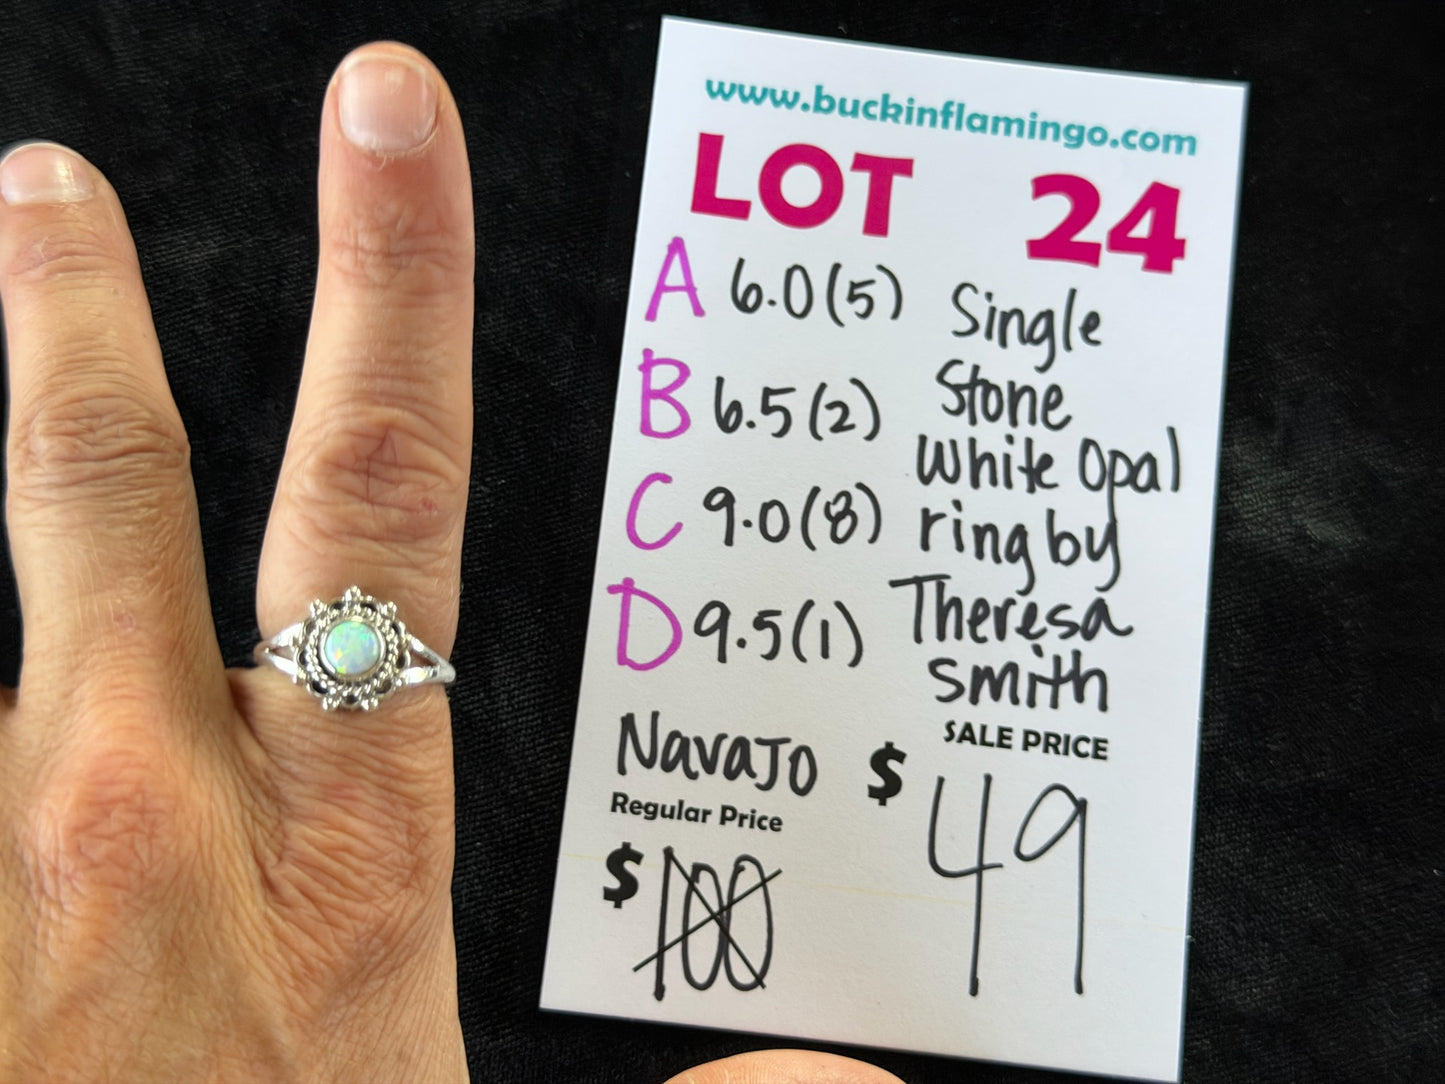 www.buckinflamingo.com
LOT 24
A 6.0(5)
B 6.5(2)
C 9.0(8)
D 9.5(1)
Single
Stone
White Opal
ring by
Theresa
Smith
Navajo
Regular Price
$100
SALE PRICE
$49